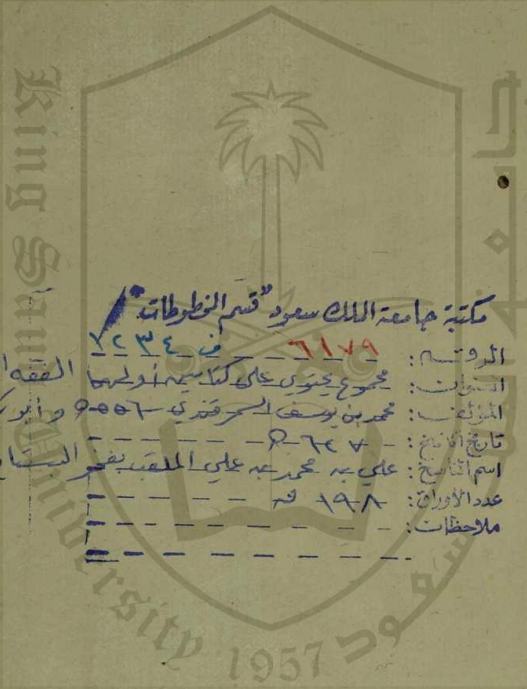 مكتبة جامعة الملك سعود "قسم المخطوطات"
الرقم: ٦١٧٩ ف ٧٢٣٤
العنوان: مجموع يحتوي على كتابين أولهما الفقه
المؤلف: محمد بن يوسف السمرقندي -٥٥٦ هـ و أبو
تاريخ النسخ: ٦٢٧ هـ
اسم الناسخ: علي بن محمد بن علي الملقب بفخر
عدد الأوراق: ١٩٨ ق
ملاحظات:
King Saud University
1957